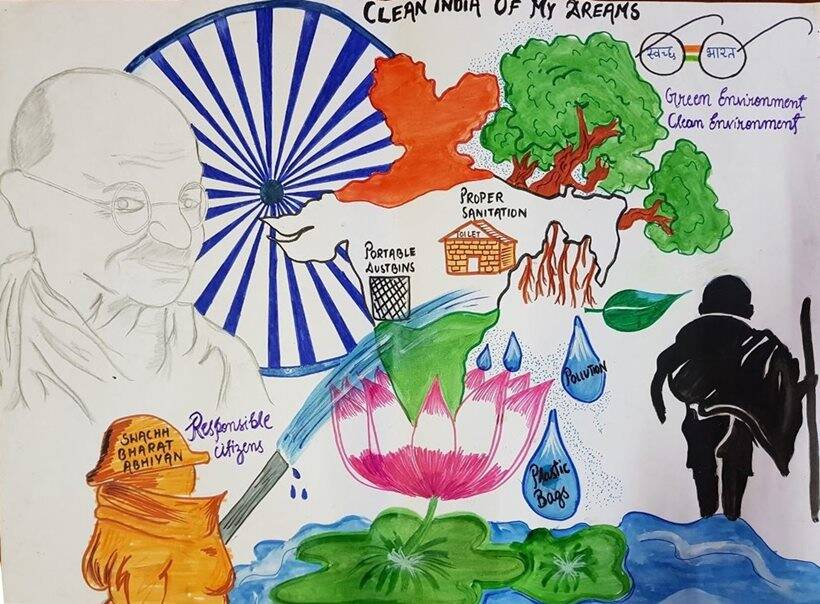 CLEAN INDIA OF MY DREAMS
स्वच्छ भारत
Green Environment
Clean Environment
PROPER
SANITATION
TOILET
PORTABLE
DUSTBINS
POLLUTION
Responsible
citizens
SWACHH
BHARAT
ABHIYAN
Plastic
Bags